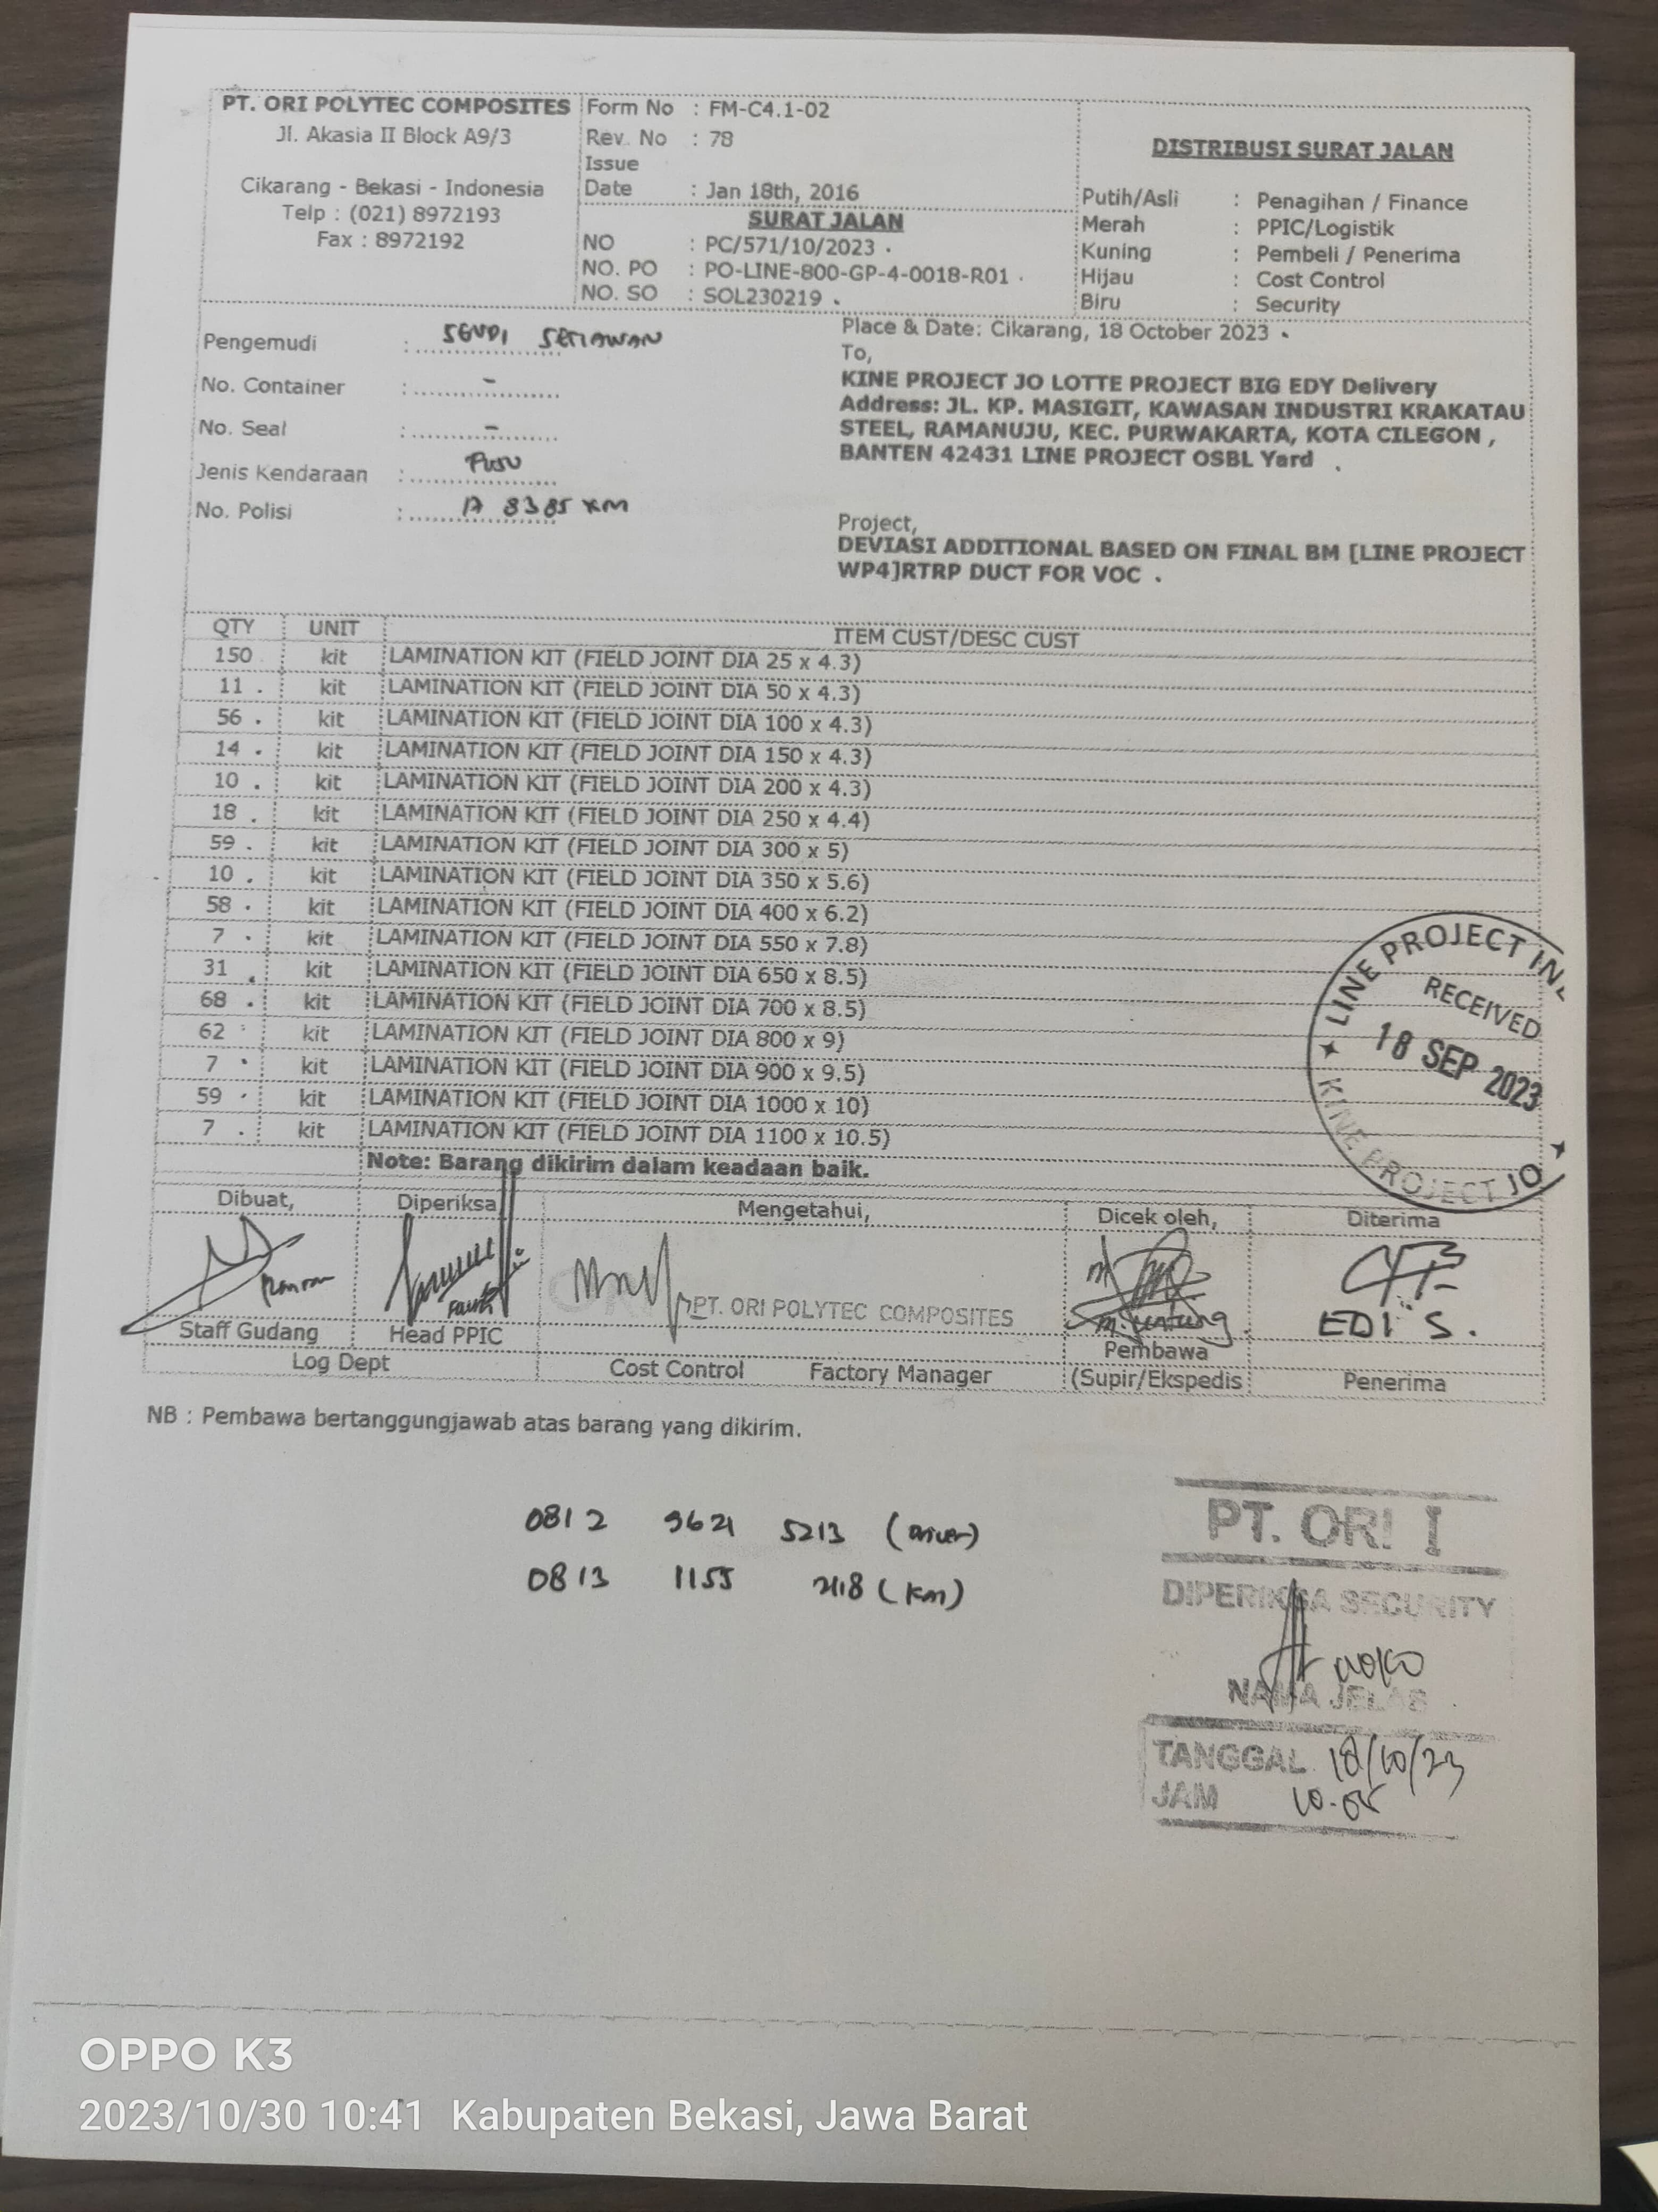 PT. ORI POLYTEC COMPOSITES
Jl. Akasia II Block A9/3
Cikarang - Bekasi - Indonesia
Telp : (021) 8972193
Fax : 8972192
Form No : FM-C4.1-02
Rev. No : 78
Issue
Date : Jan 18th, 2016
SURAT JALAN
NO : PC/571/10/2023
NO. PO : PO-LINE-800-GP-4-0018-R01
NO. SO : SOL230219
DISTRIBUSI SURAT JALAN
Putih/Asli : Penagihan / Finance
Merah : PPIC/Logistik
Kuning : Pembeli / Penerima
Hijau : Cost Control
Biru : Security
Pengemudi : SETIAWAN
No. Container : -
No. Seal : -
Jenis Kendaraan : FUSO
No. Polisi : A 8385 XM
Place & Date: Cikarang, 18 October 2023
To,
KINE PROJECT JO LOTTE PROJECT BIG EDY Delivery
Address: JL. KP. MASIGIT, KAWASAN INDUSTRI KRAKATAU
STEEL, RAMANUJU, KEC. PURWAKARTA, KOTA CILEGON ,
BANTEN 42431 LINE PROJECT OSBL Yard
Project,
DEVIASI ADDITIONAL BASED ON FINAL BM [LINE PROJECT
WP4]RTRP DUCT FOR VOC
QTY UNIT ITEM CUST/DESC CUST
150 kit LAMINATION KIT (FIELD JOINT DIA 25 x 4.3)
11 kit LAMINATION KIT (FIELD JOINT DIA 50 x 4.3)
56 kit LAMINATION KIT (FIELD JOINT DIA 100 x 4.3)
14 kit LAMINATION KIT (FIELD JOINT DIA 150 x 4.3)
10 kit LAMINATION KIT (FIELD JOINT DIA 200 x 4.3)
18 kit LAMINATION KIT (FIELD JOINT DIA 250 x 4.4)
59 kit LAMINATION KIT (FIELD JOINT DIA 300 x 5)
10 kit LAMINATION KIT (FIELD JOINT DIA 350 x 5.6)
58 kit LAMINATION KIT (FIELD JOINT DIA 400 x 6.2)
7 kit LAMINATION KIT (FIELD JOINT DIA 550 x 7.8)
31 kit LAMINATION KIT (FIELD JOINT DIA 650 x 8.5)
68 kit LAMINATION KIT (FIELD JOINT DIA 700 x 8.5)
62 kit LAMINATION KIT (FIELD JOINT DIA 800 x 9)
7 kit LAMINATION KIT (FIELD JOINT DIA 900 x 9.5)
59 kit LAMINATION KIT (FIELD JOINT DIA 1000 x 10)
7 kit LAMINATION KIT (FIELD JOINT DIA 1100 x 10.5)
Note: Barang dikirim dalam keadaan baik.
LINE PROJECT
RECEIVED
18 SEP 2023
KINE PROJECT JO
Dibuat, Diperiksa Mengetahui, Dicek oleh, Diterima
PT. ORI POLYTEC COMPOSITES
EDI S.
Staff Gudang Head PPIC Pembawa
Log Dept Cost Control Factory Manager (Supir/Ekspedis Penerima
NB : Pembawa bertanggungjawab atas barang yang dikirim.
0812 9621 5213 (Driver)
0813 1155
PT. ORI I
DIPERIKSA SECURITY
NAMA JELAS
TANGGAL 18/10/23
JAM 10.05
OPPO K3
2023/10/30 10:41 Kabupaten Bekasi, Jawa Barat